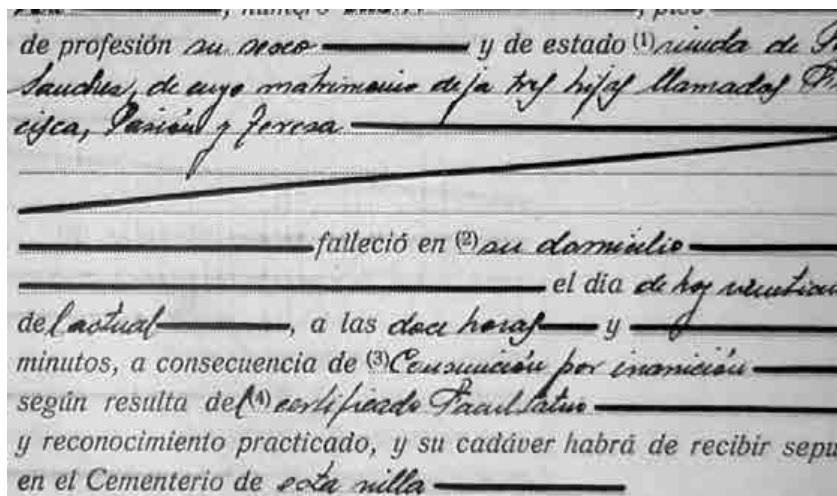 de profesión su sexo y de estado (1) viuda de
Sanchez, de cuyo matrimonio deja tres hijas llamadas
cisca, Pasión y Teresa
falleció en (2) su domicilio
el día de hoy
del actual, a las doce horas y
minutos, a consecuencia de (3) Consunción por inanición
según resulta del (4) certificado Facultativo
y reconocimiento practicado, y su cadáver habrá de recibir sepu
en el Cementerio de esta villa